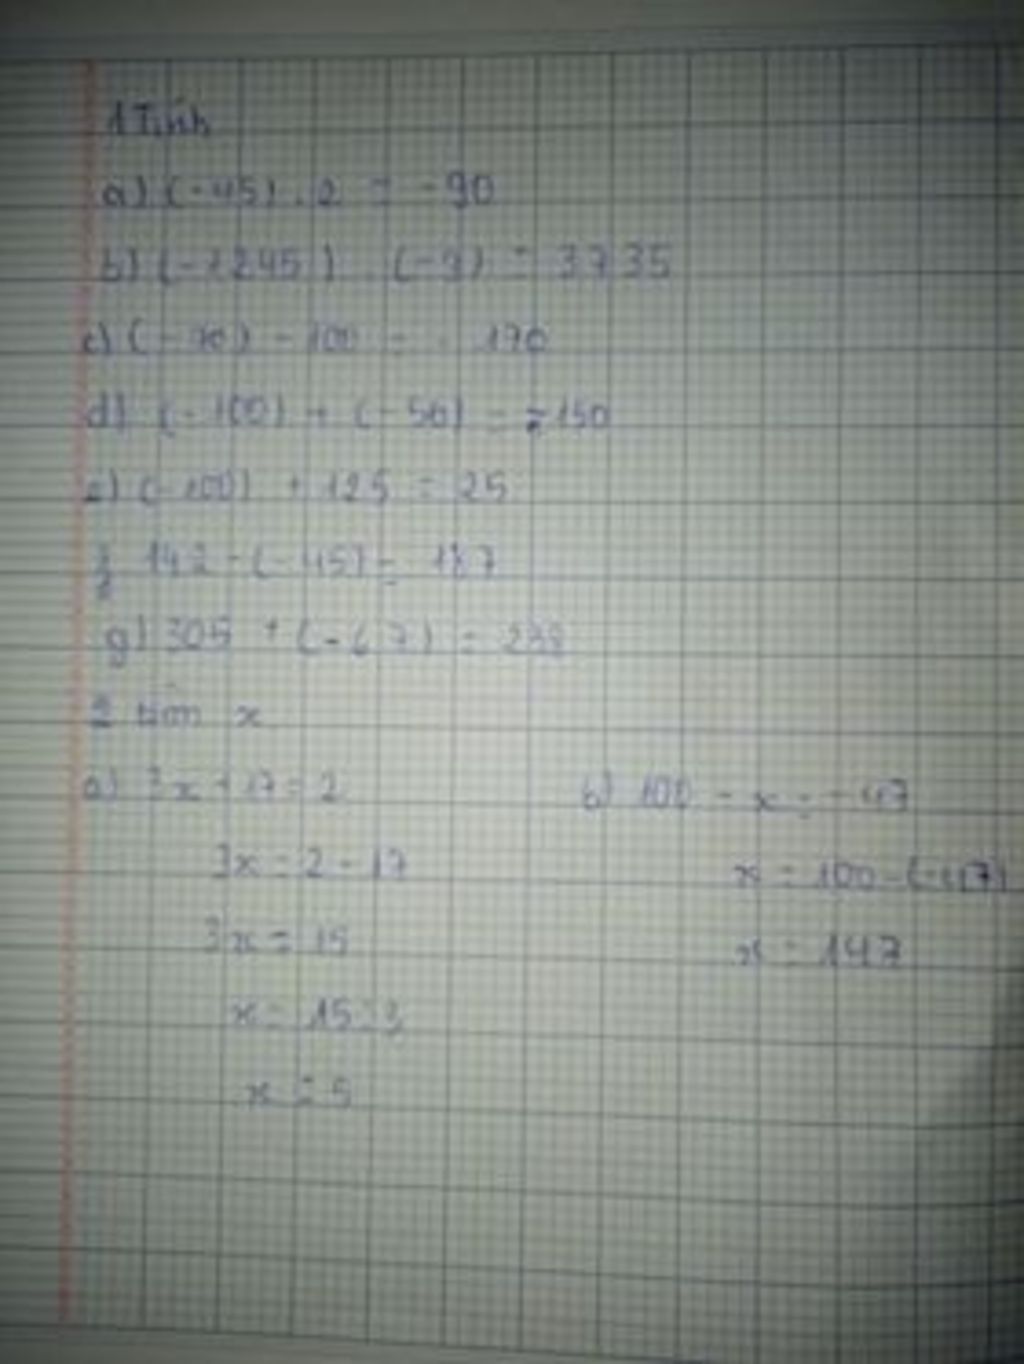 1 Tính
a) (-45) . 2 = -90
b) (-1245) (-3) = 3735
c) (-70) - 100 = - 170
d) (-100) + (-50) = -150
e) (-100) + 125 = 25
f) 142 - (-45) = 187
g) 305 + (-67) = 238
2 tìm x
a) 3x + 17 = 2
3x = 2 - 17
3x = 15
x = 15 : 3
x = 5
b) 100 - x = -47
x = 100 - (-47)
x = 147